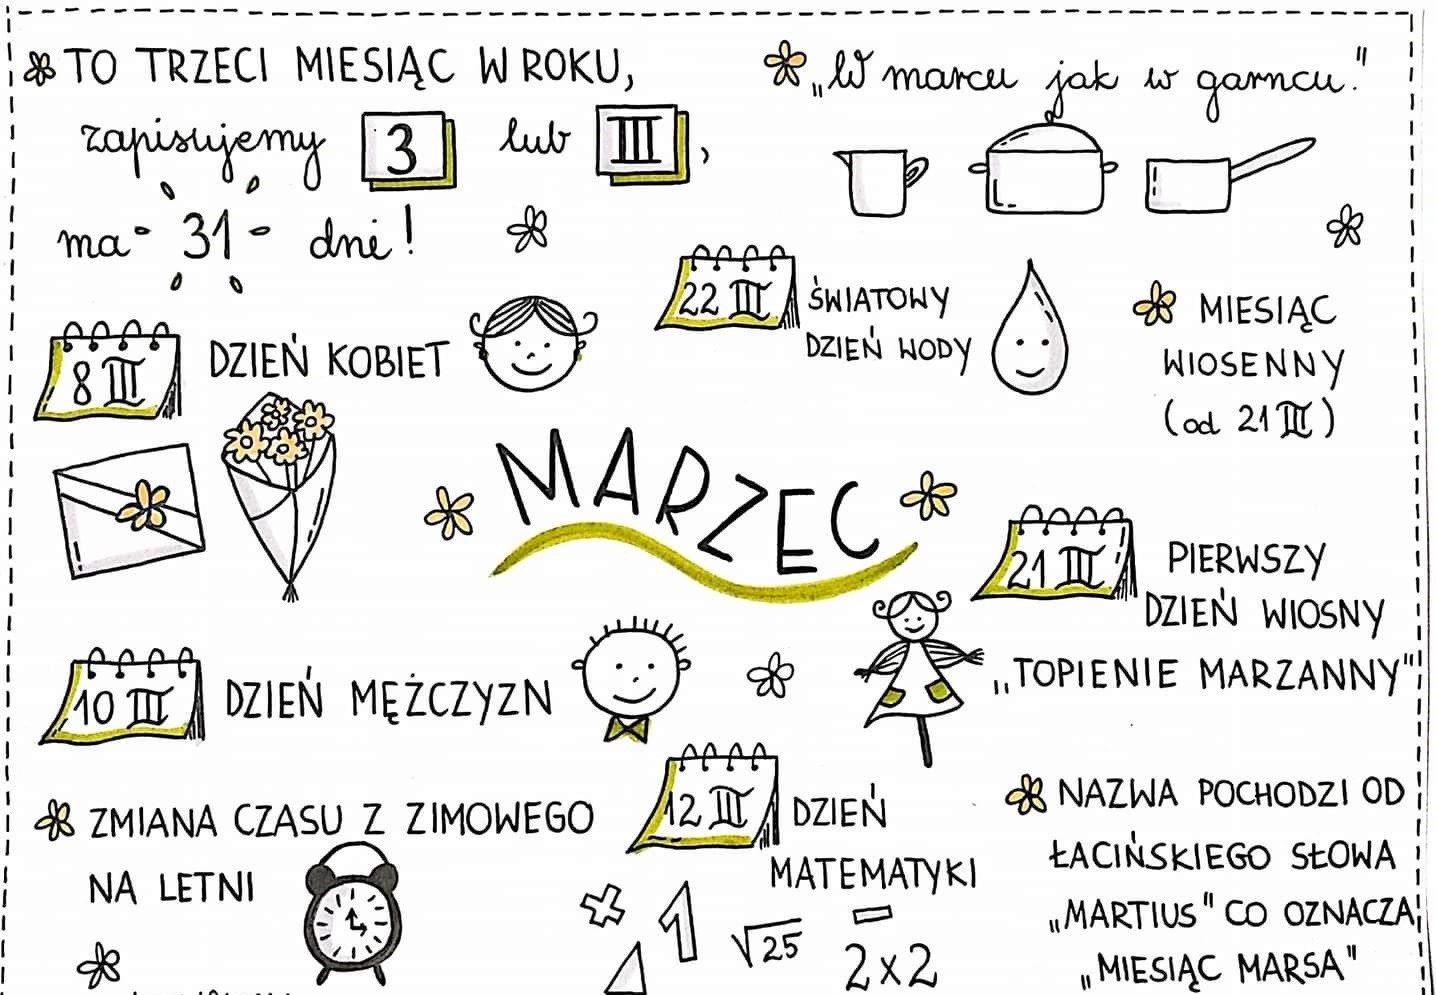 TO TRZECI MIESIĄC W ROKU,
zapisujemy 3 lub III,
ma 31 dni!
„W marcu jak w garncu."
8 III DZIEŃ KOBIET
22 III ŚWIATOWY
DZIEŃ WODY
MIESIĄC
WIOSENNY
(od 21 III)
MARZEC
21 III PIERWSZY
DZIEŃ WIOSNY
„TOPIENIE MARZANNY"
10 III DZIEŃ MĘŻCZYZN
ZMIANA CZASU Z ZIMOWEGO
NA LETNI
12 III DZIEŃ
MATEMATYKI
1 √25
2x2
NAZWA POCHODZI OD
ŁACIŃSKIEGO SŁOWA
„MARTIUS" CO OZNACZA
„MIESIĄC MARSA"